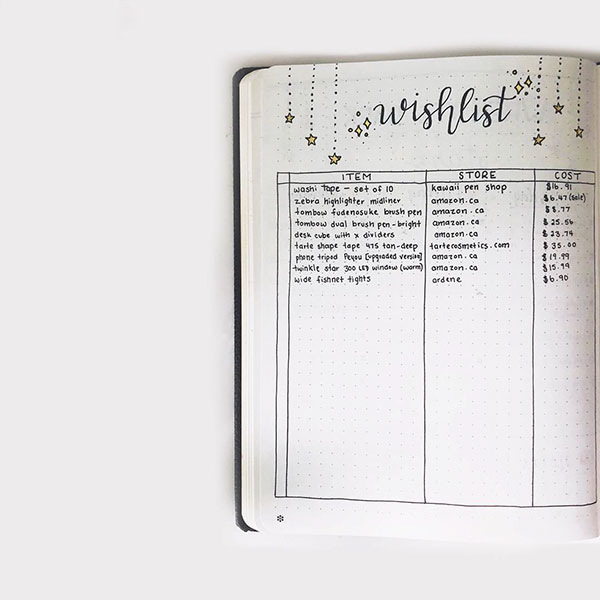 wishlist
ITEM STORE COST
washi tape - set of 10 kawaii pen shop $16.91
zebra highlighter midliner amazon.ca $6.47 (sale)
tombow fudenosuke brush pen amazon.ca $8.77
tombow dual brush pen - bright amazon.ca $25.56
desk cube with x dividers amazon.ca $23.74
tarte shape tape 47S tan-deep tartecosmetics.com $35.00
phone tripod Peyou [upgraded version] amazon.ca $19.99
twinkle star 300 LED window (warm) amazon.ca $15.99
wide fishnet tights ardene $6.90